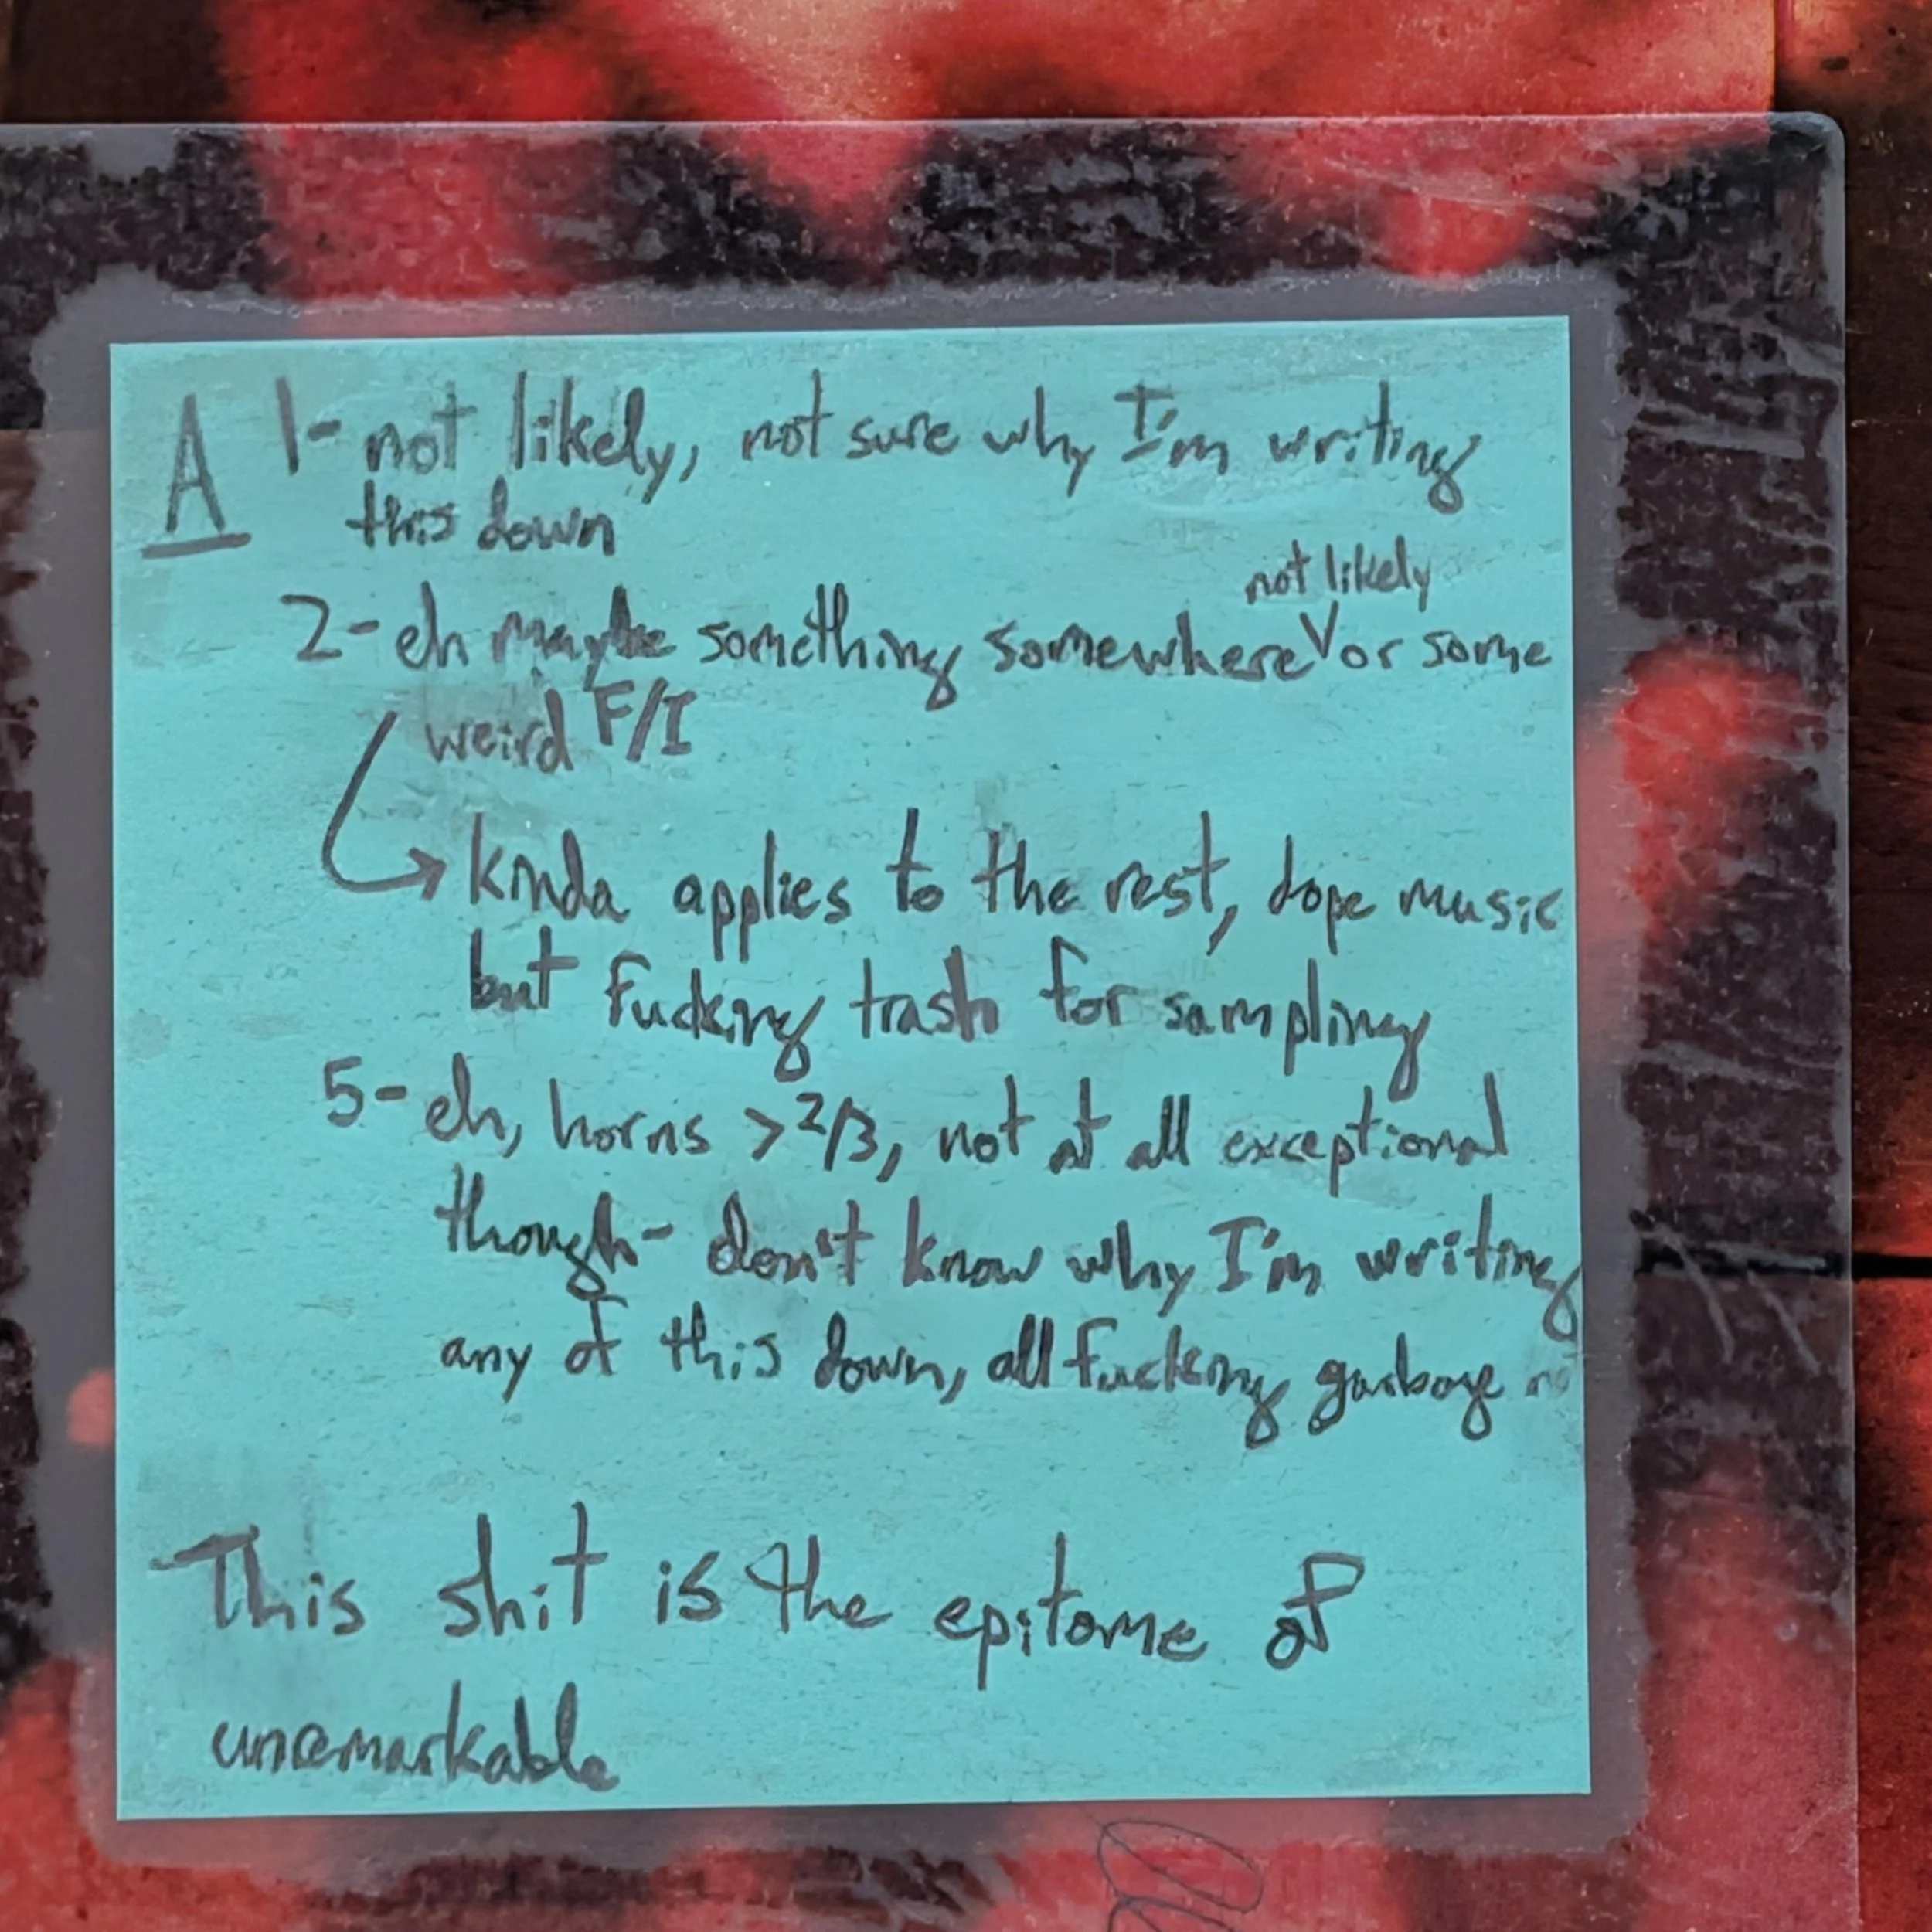 A 1- not likely, not sure why I'm writing
this down
not likely
2- eh maybe something somewhere V or some
weird F/I
→ kinda applies to the rest, dope music
but fucking trash for sampling
5- eh, horns > 2/3, not at all exceptional
though - don't know why I'm writing
any of this down, all fucking garbage
This shit is the epitome of
unremarkable